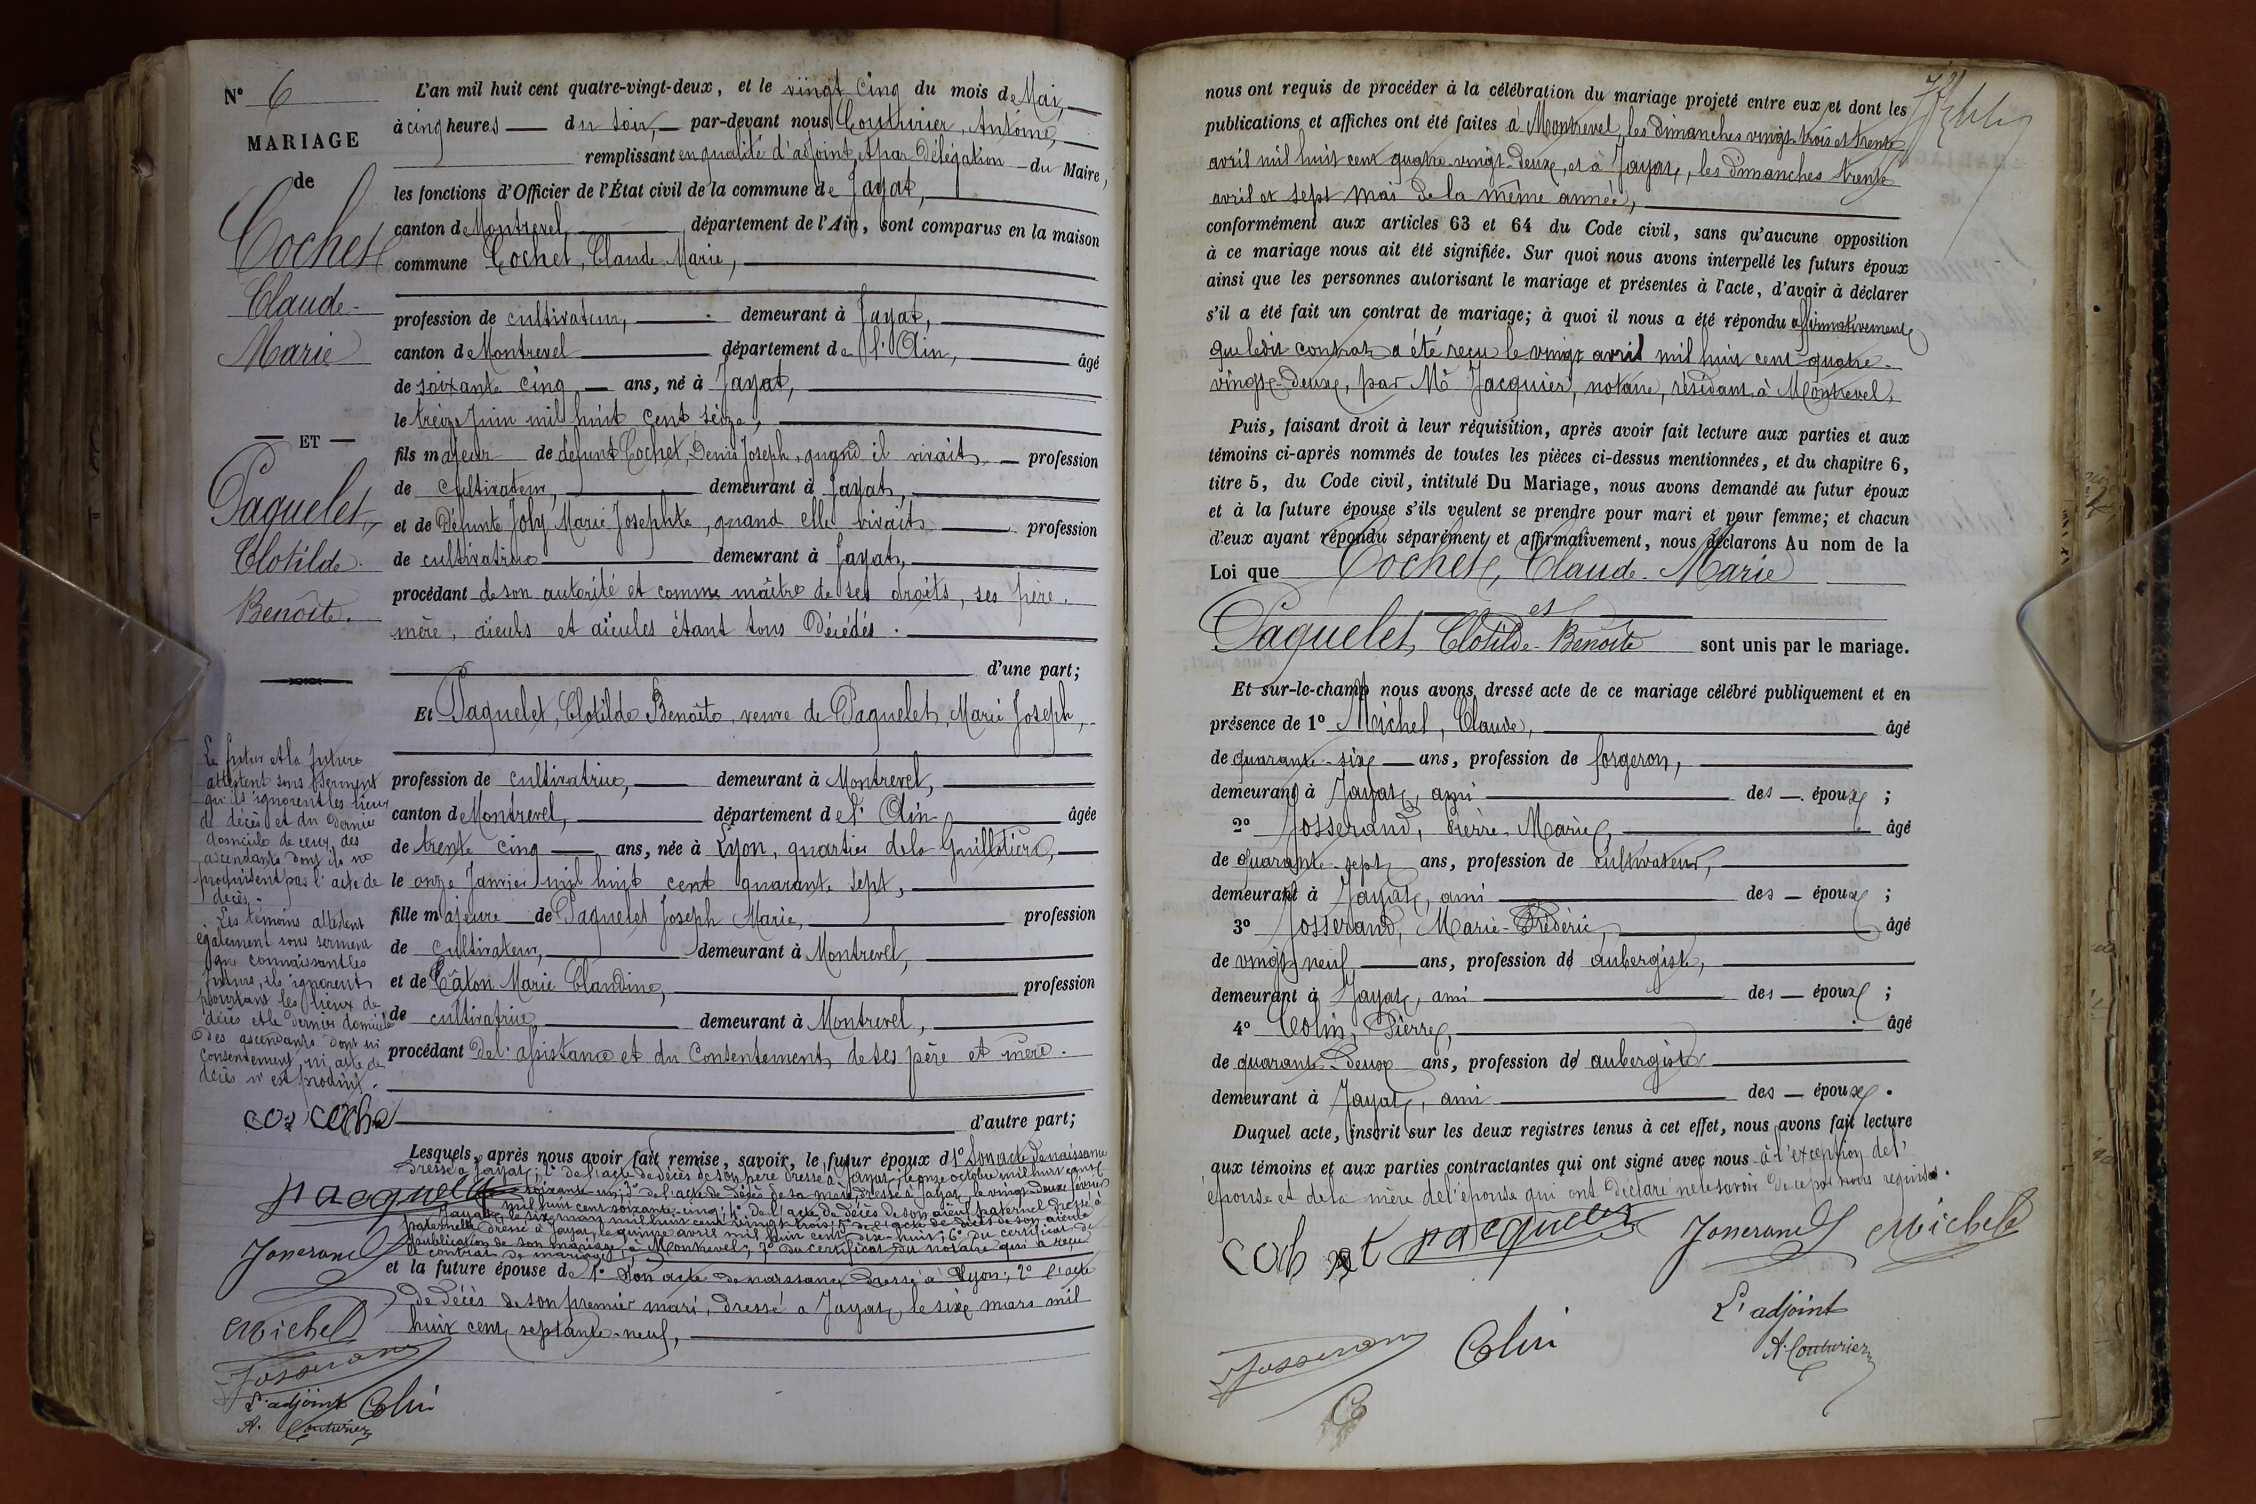 N° 6
MARIAGE
de
Cochet
Claude-
Marie
— ET —
Paquelet,
Clotilde
Benoîte.
Le futur et la future
attestent sous serment
qu'ils ignorent les lieux
de décès et du dernier
domicile de ceux des
ascendants dont ils ne
produisent pas l'acte de
décès.
Les témoins attestent
également sous serment
que connaissant les
futurs, ils ignorent
pourtant les lieux de
décès et le dernier domicile
des ascendants dont ni
consentement, ni acte de
décès n'est produit.
coz coche
pacquelet
Josserand
Michel
Josserand
L'adjoint Colin
A. Couturier
L'an mil huit cent quatre-vingt-deux, et le vingt cinq du mois de Mai,
à cinq heures du soir, par-devant nous Couturier, Antoine,
remplissant en qualité d'adjoint et par Délégation du Maire,
les fonctions d'Officier de l'État civil de la commune de Jayat,
canton de Montrevel département de l'Ain, sont comparus en la maison
commune Cochet, Claude-Marie,
profession de cultivateur, demeurant à Jayat,
canton de Montrevel département de l'Ain, âgé
de soixante cinq ans, né à Jayat,
le treize Juin mil huit cent seize,
fils majeur de défunt Cochet, Denis Joseph, quand il vivait profession
de cultivateur, demeurant à Jayat,
et de Défunte Joly Marie Josephte, quand elle vivait profession
de cultivatrice demeurant à Jayat,
procédant de son autorité et comme maître de ses droits, ses père,
mère, aïeuls et aïeules étant tous Décédés.
d'une part;
Et Paquelet, Clotilde Benoîte, veuve de Paquelet, Marie Joseph,
profession de cultivatrice, demeurant à Montrevel,
canton de Montrevel, département de l'Ain âgée
de trente cinq ans, née à Lyon, quartier de la Guillotière,
le onze Janvier mil huit cent quarante sept,
fille majeure de Paquelet Joseph Marie, profession
de cultivateur, demeurant à Montrevel,
et de Câton Marie Claudine, profession
de cultivatrice demeurant à Montrevel,
procédant de l'assistance et du Consentement de ses père et mère.
d'autre part;
Lesquels, après nous avoir fait remise, savoir, le futur époux de 1° Son acte de naissance
dressé à Jayat; 2° de l'acte de décès de son père dressé à Jayat, le onze octobre mil huit cent
soixante un; 3° de l'acte de décès de sa mère, dressé à Jayat, le vingt-deux février
mil huit cent soixante-cinq; 4° De l'acte de décès de son aïeul paternel dressé à
Jayat, le six mars mil huit cent vingt trois; 5° de l'acte de décès de son aïeule
paternelle dressé à Jayat, le quinze avril mil huit cent dix-huit; 6° Du certificat de
publication de son mariage, à Montrevel; 7° Du certificat du notaire qui a reçu
le contrat de mariage,
et la future épouse de 1° Son acte de naissance dressé à Lyon; 2° l'acte
de décès de son premier mari, dressé à Jayat, le six mars mil
huit cent septante-neuf,
nous ont requis de procéder à la célébration du mariage projeté entre eux et dont les
publications et affiches ont été faites à Montrevel, les dimanches vingt-trois et trente
avril mil huit cent quatre-vingt-deux, et à Jayat, les dimanches trente
avril et sept mai de la même année,
conformément aux articles 63 et 64 du Code civil, sans qu'aucune opposition
à ce mariage nous ait été signifiée. Sur quoi nous avons interpellé les futurs époux
ainsi que les personnes autorisant le mariage et présentes à l'acte, d'avoir à déclarer
s'il a été fait un contrat de mariage; à quoi il nous a été répondu affirmativement
que ledit contrat a été reçu le vingt avril mil huit cent quatre-
vingt-deux, par Me Jacquier, notaire, résidant à Montrevel.
Puis, faisant droit à leur réquisition, après avoir fait lecture aux parties et aux
témoins ci-après nommés de toutes les pièces ci-dessus mentionnées, et du chapitre 6,
titre 5, du Code civil, intitulé Du Mariage, nous avons demandé au futur époux
et à la future épouse s'ils veulent se prendre pour mari et pour femme; et chacun
d'eux ayant répondu séparément et affirmativement, nous déclarons Au nom de la
Loi que Cochet, Claude-Marie
et
Paquelet, Clotilde-Benoîte sont unis par le mariage.
Et sur-le-champ nous avons dressé acte de ce mariage célébré publiquement et en
présence de 1° Michel, Claude, âgé
de quarante-six ans, profession de forgeron,
demeurant à Jayat, ami des époux;
2° Josserand, Pierre-Marie, âgé
de quarante-sept ans, profession de cultivateur,
demeurant à Jayat, ami des époux;
3° Josserand, Marie-Frédéric, âgé
de vingt neuf ans, profession de aubergiste,
demeurant à Jayat, ami des époux;
4° Colin, Pierre, âgé
de quarante-deux ans, profession de aubergiste
demeurant à Jayat, ami des époux.
Duquel acte, inscrit sur les deux registres tenus à cet effet, nous avons fait lecture
aux témoins et aux parties contractantes qui ont signé avec nous à l'exception de l'
épouse et de la mère de l'épouse qui ont déclaré ne le savoir de ce par nous requises.
cochet pacquelet Josserand Michel
Josserand Colin
L'adjoint
A. Couturier